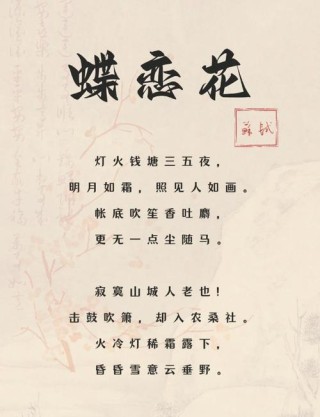 蝶恋花
蘇軾
灯火钱塘三五夜，
明月如霜，照见人如画。
帐底吹笙香吐麝，
更无一点尘随马。
寂寞山城人老也！
击鼓吹箫，却入农桑社。
火冷灯稀霜露下，
昏昏雪意云垂野。